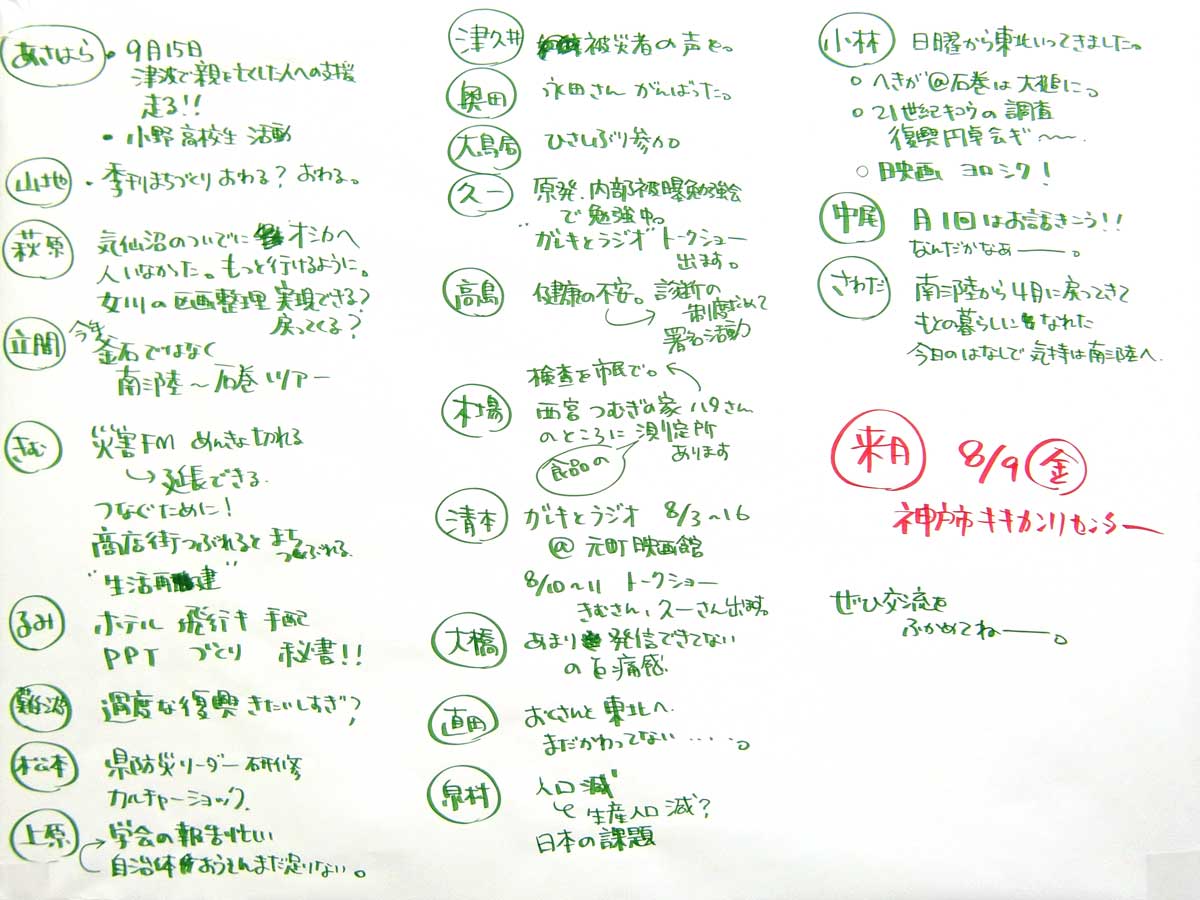 あさはら
・9月15日
津波で親を亡くした人への支援
走る!!
・小野高校生 活動
山地
・季刊まちづくり おわる? おわる。
萩原
気仙沼のついでに オシカへ
人いなかった。もっと行けるように。
女川の区画整理 実現できる?
戻ってくる?
立間
今年
釜石ではなく
南三陸～石巻ツアー
きむ
災害FM めんきょ切れる
延長できる
つなぐために!
商店街つぶれると まち
つぶれる
"生活再建"
るみ
ホテル 飛行キ 手配
PPT づくり 秘書!!
難波
過度な復興 きたいしすぎ?
松本
県防災リーダー 研修
カルチャーショック
上原
学会の報告忙しい
自治体おうえんまだ足りない。
津久井
被災者の声を。
奥田
永田さん がんばった。
大鳥居
ひさしぶり参加
久一
原発、内部被曝勉強会
で勉強中。
"ガレキとラジオ"トークショー
出ます。
高島
健康の不安。診断の
制度求めて
署名活動
検査を市民で。
木場
西宮 つむぎの家 ハタさん
のところに 測定所
あります
食品の
清本
ガレキとラジオ 8/3～16
@ 元町映画館
8/10～11 トークショー
きむさん、久一さん出ます。
大橋
あまり 発信できてない
のを痛感
直田
おくさんと東北へ
まだかわってない・・・・。
泉村
人口減
生産人口減?
日本の課題
小林
日曜から東北いってきました。
○ へきが@石巻は大槌に。
○ 21世紀キコウの調査
復興円卓会ギ～
○ 映画 ヨロシク!
中尾
月1回はお話きこう!!
なんだかなあー。
さわだ
南三陸から4月に戻ってきて
もとの暮らしになれた
今日のはなしで気持は南三陸へ
来月 8/9 金
神戸市キキカンリセンター
ぜひ交流を
ふかめてねー。